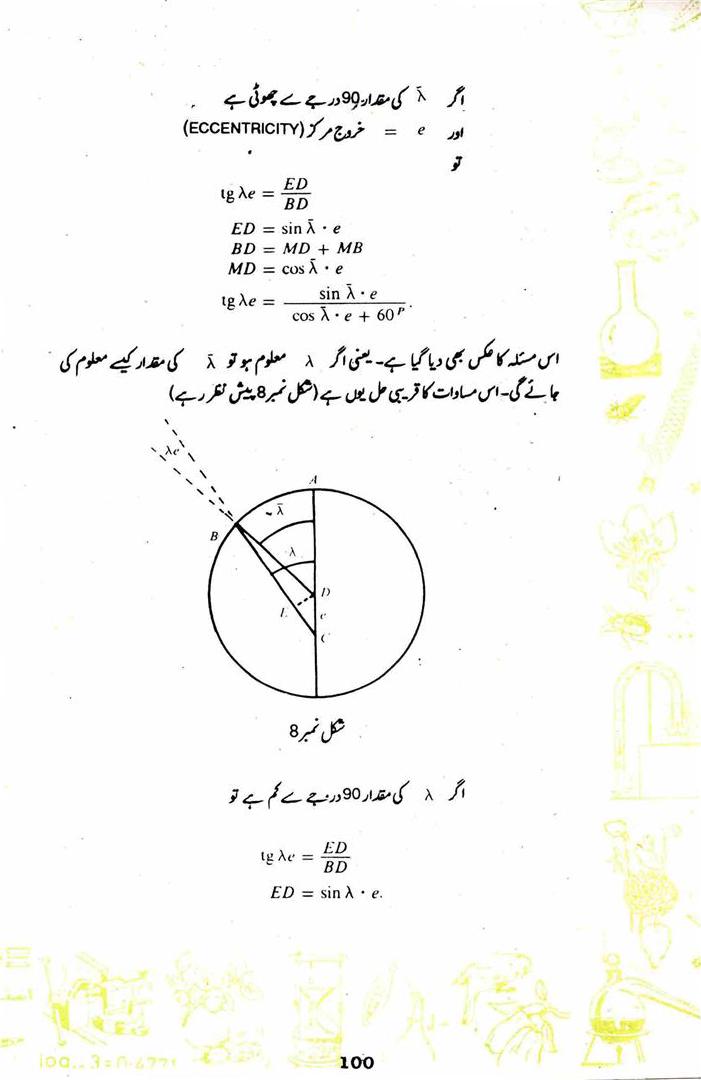 اگر λ̄ کی مقدار 90 درجے سے چھوٹی ہے
اور e = خروج مرکز (ECCENTRICITY)
تو
tg λe = ED/BD
ED = sin λ̄ · e
BD = MD + MB
MD = cos λ̄ · e
tg λe = sin λ̄ · e / cos λ̄ · e + 60ᴾ.
اس مسئلہ کا عکس بھی دیا گیا ہے۔ یعنی اگر λ معلوم ہو تو λ̄ کی مقدار کیسے معلوم کی
جائے گی۔ اس مساوات کا قریبی حل یوں ہے (شکل نمبر 8 پیش نظر رہے)
λe
A
λ̄
B
λ
D
E
e
C
شکل نمبر 8
اگر λ کی مقدار 90 درجے سے کم ہے تو
tg λe = ED/BD
ED = sin λ · e.
100